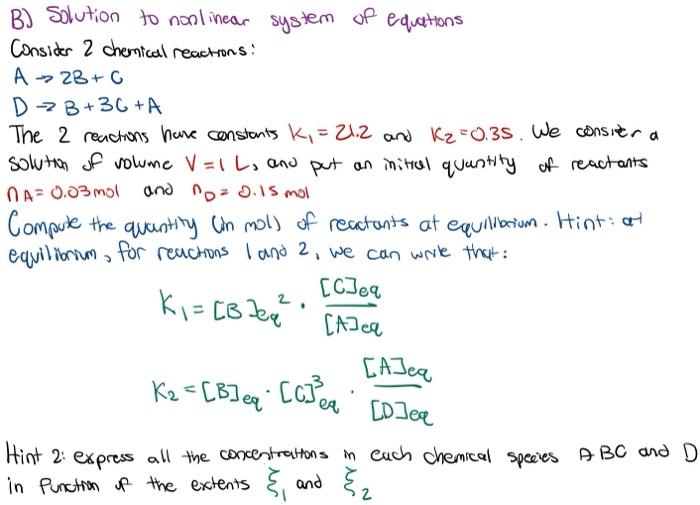 B) Solution to nonlinear system of equations
Consider 2 chemical reactions:
A → 2B + C
D → B + 3C + A
The 2 reactions have constants K₁ = 21.2 and K₂ = 0.35. We consider a
solution of volume V = 1 L, and put an initial quantity of reactants
nA = 0.03 mol and nD = 0.15 mol
Compute the quantity (in mol) of reactants at equilibrium. Hint: at
equilibrium, for reactions 1 and 2, we can write that:
K₁ = [B]eq² · [C]eq / [A]eq
K₂ = [B]eq · [C]³eq · [A]eq / [D]eq
Hint 2: express all the concentrations in each chemical species A B C and D
in function of the extents ξ₁ and ξ₂